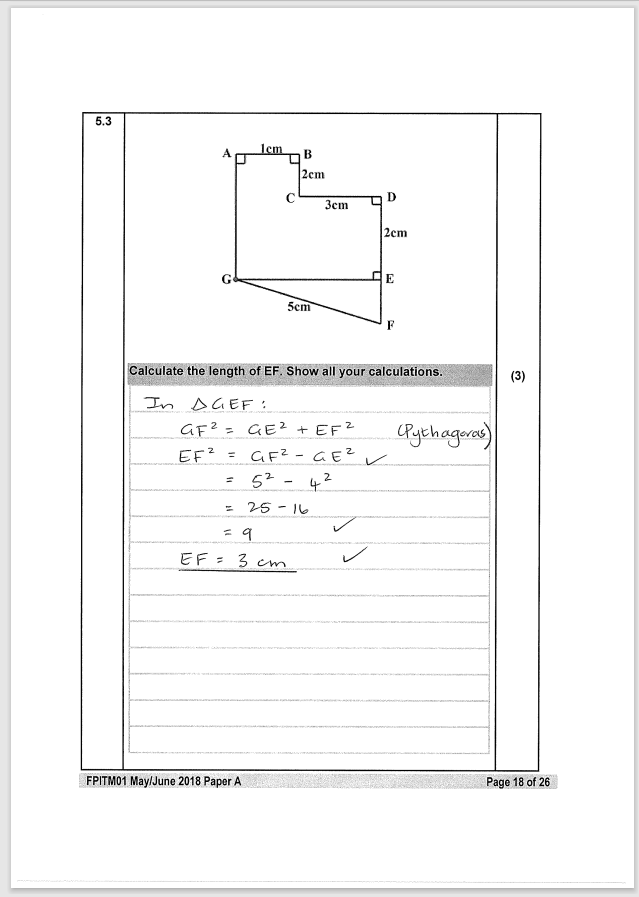 5.3
A 1cm B
2cm
C 3cm D
2cm
G E
5cm
F
Calculate the length of EF. Show all your calculations. (3)
In △GEF :
GF² = GE² + EF² (Pythagoras)
EF² = GF² - GE² ✓
= 5² - 4²
= 25 - 16
= 9 ✓
EF = 3 cm ✓
FPITM01 May/June 2018 Paper A Page 18 of 26